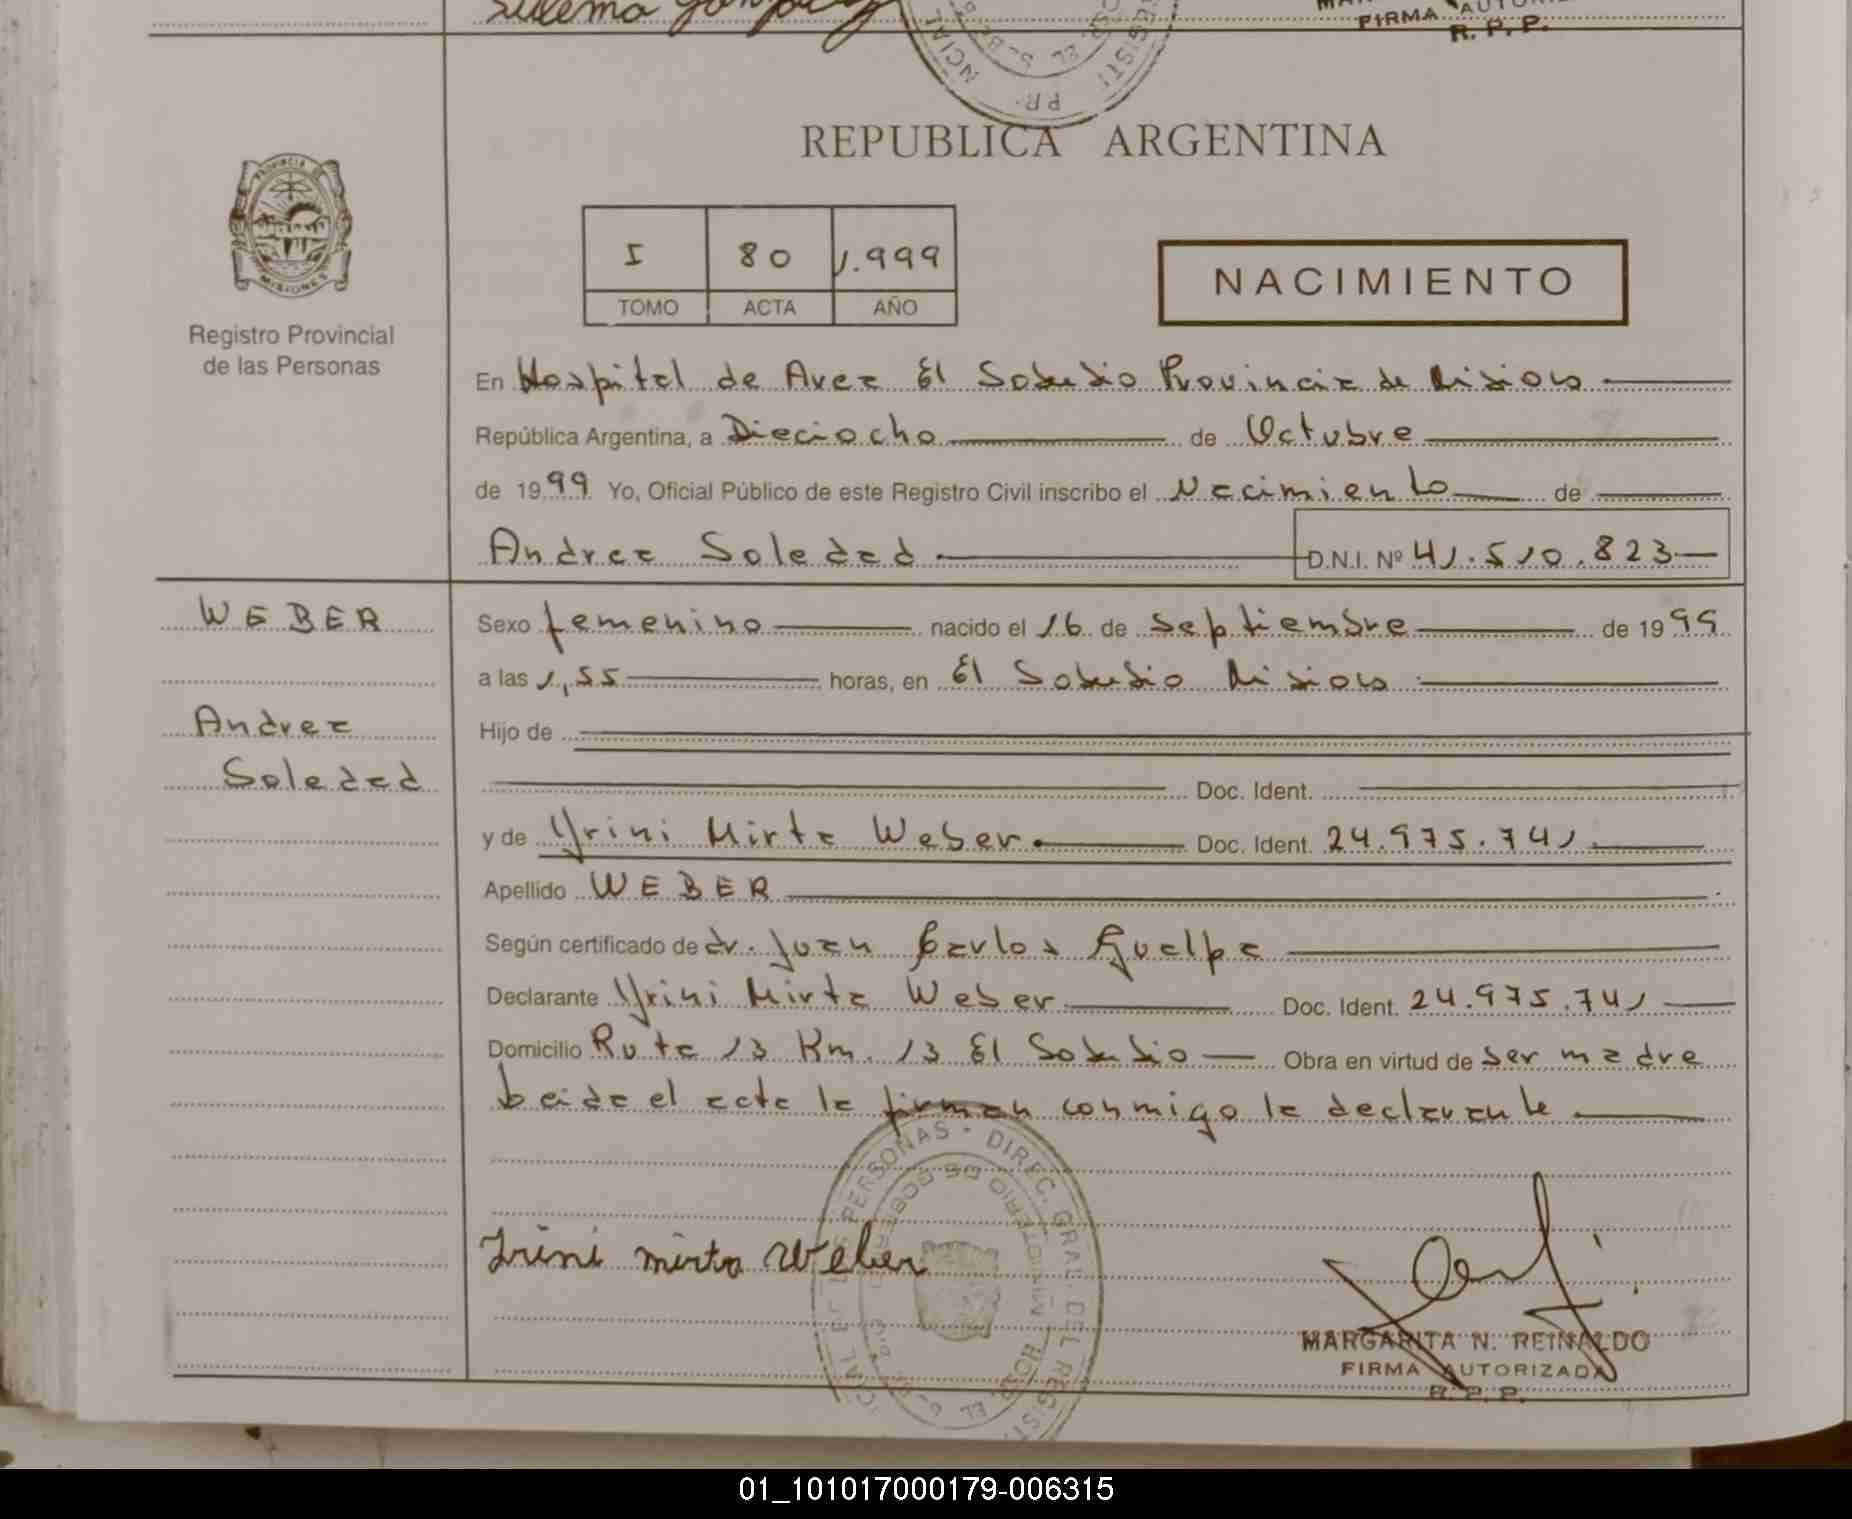 Zulema
FIRMA AUTORIZ
R. P. P.
REPUBLICA ARGENTINA
PROVINCIA
MISIONES
Registro Provincial
de las Personas
I 80 1.999
TOMO ACTA AÑO
NACIMIENTO
En Hospital de Area El Soberbio Provincia de Misiones
República Argentina, a Dieciocho de Octubre
de 1999 Yo, Oficial Público de este Registro Civil inscribo el Nacimiento de
Andrea Soledad D.N.I. Nº 41.510.823
WEBER
Andrea
Soledad
Sexo femenino nacido el 16 de Septiembre de 1999
a las 1,55 horas, en El Soberbio Misiones
Hijo de
Doc. Ident.
y de Yrini Mirta Weber Doc. Ident. 24.975.741
Apellido WEBER
Según certificado de dr. Juan Carlos Guelpa
Declarante Yrini Mirta Weber Doc. Ident. 24.975.741
Domicilio Ruta 13 Km. 13 El Soberbio Obra en virtud de ser madre
Leida el acta la firman conmigo la declarante
PERSONAS · DIREC. GRAL. DEL REGIST
Irini mirta Weber
MARGARITA N. REINALDO
FIRMA AUTORIZADA
R. P. P.
01_101017000179-006315